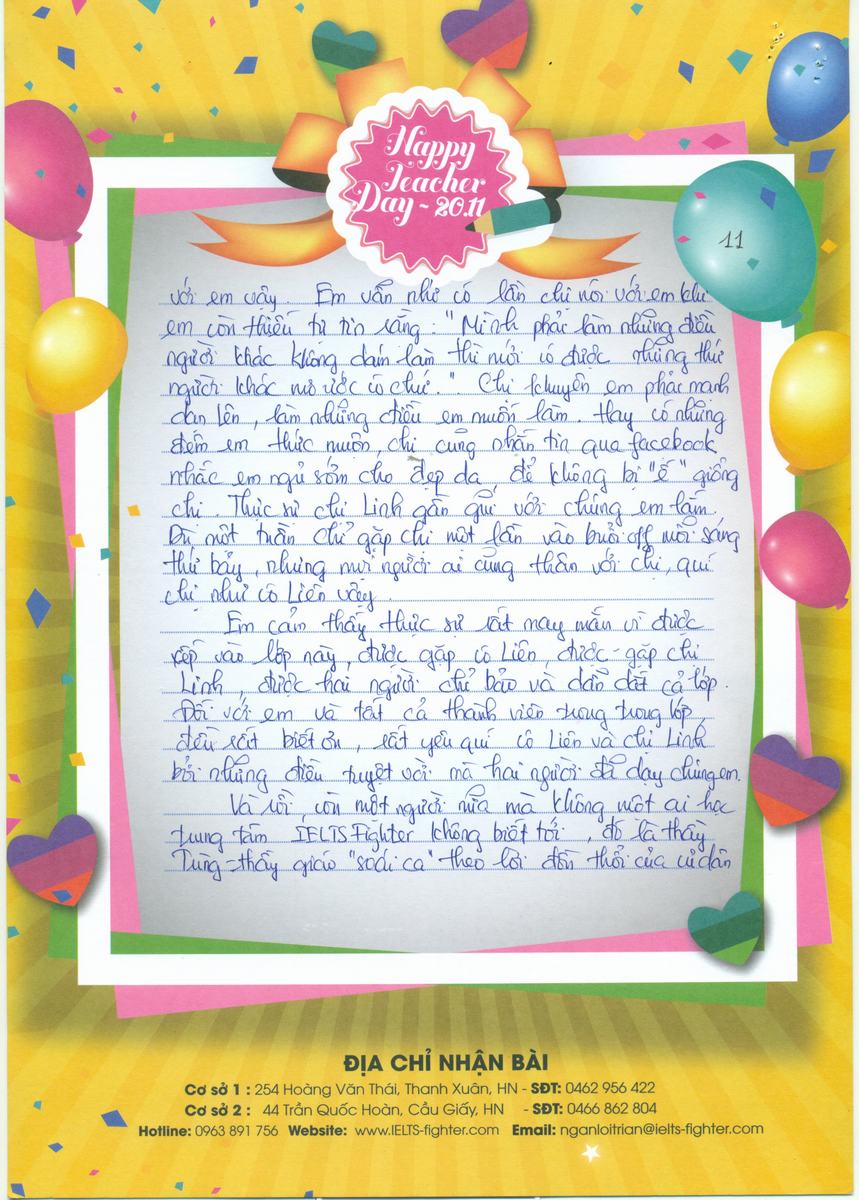 Happy
Teacher
Day ~ 20.11
11
với em vậy. Em vẫn như có lần chị nói với em khi
em còn thiếu tự tin rằng : "Mình phải làm những điều
người khác không dám làm thì mới có được những thứ
người khác mơ ước có chứ.". Chị khuyên em phải mạnh
dạn lên, làm những điều em muốn làm. Hay có những
đêm em thức muộn, chị cũng nhắn tin qua facebook
nhắc em ngủ sớm cho đẹp da, để không bị "ế" giống
chị. Thực sự chị Linh gần gũi với chúng em lắm.
Dù một tuần chỉ gặp chị một lần vào buổi off mỗi sáng
thứ bảy, nhưng mọi người ai cũng thân với chị, quí
chị như cô Liên vậy.
Em cảm thấy thực sự rất may mắn vì được
xếp vào lớp này, được gặp cô Liên, được gặp chị
Linh, được hai người chỉ bảo và dẫn dắt cả lớp.
Đối với em và tất cả thành viên trong trong lớp,
đều rất biết ơn, rất yêu quí cô Liên và chị Linh
bởi những điều tuyệt vời mà hai người đã dạy chúng em.
Và rồi, còn một người nữa mà không một ai học
trung tâm IELTS Fighter không biết tới, đó là thầy
Tùng - thầy giáo "sodica" theo lời đồn thổi của cư dân
ĐỊA CHỈ NHẬN BÀI
Cơ sở 1 : 254 Hoàng Văn Thái, Thanh Xuân, HN - SĐT: 0462 956 422
Cơ sở 2 : 44 Trần Quốc Hoàn, Cầu Giấy, HN - SĐT: 0466 862 804
Hotline: 0963 891 756 Website: www.IELTS-fighter.com Email: nganloitrian@ielts-fighter.com